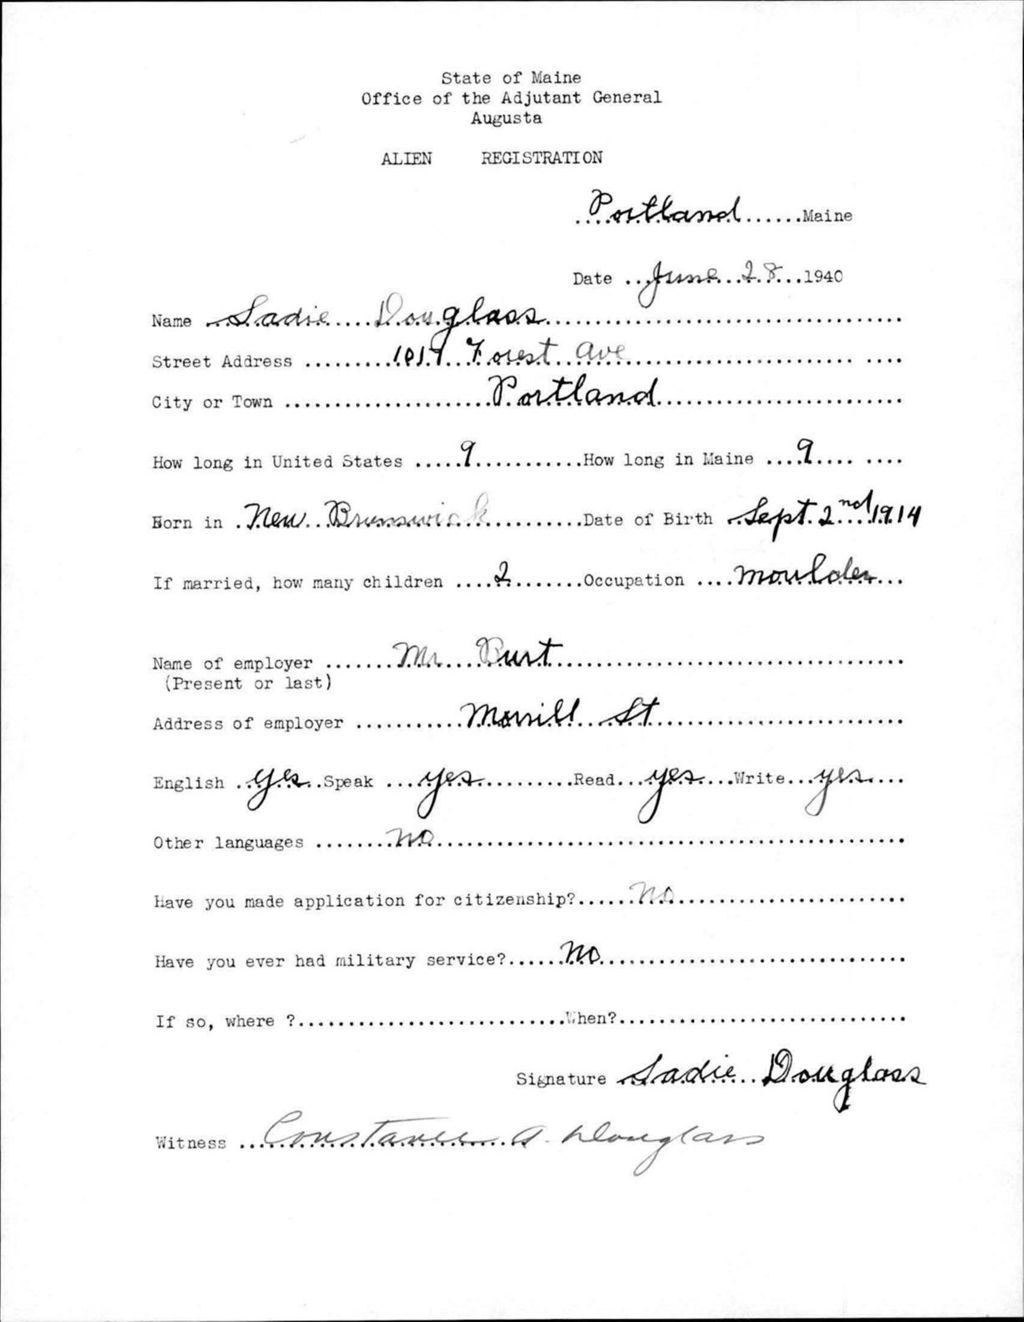 State of Maine
Office of the Adjutant General
Augusta
ALIEN REGISTRATION
Portland Maine
Date June 28 1940
Name Sadie Douglass
Street Address 1017 Forest Ave
City or Town Portland
How long in United States 9 How long in Maine 9
Born in New Brunswick Date of Birth Sept. 2nd 1914
If married, how many children 2 Occupation Moulder
Name of employer Mr. Burt
(Present or last)
Address of employer Morrill St
English yes Speak yes Read yes Write yes
Other languages no
Have you made application for citizenship? No
Have you ever had military service? No
If so, where ? When?
Signature Sadie Douglass
Witness Constance A. Douglass